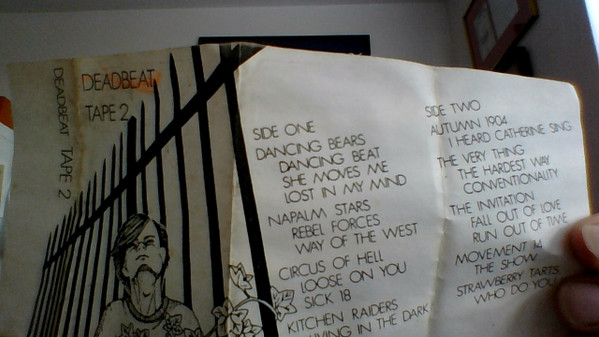 DEADBEAT TAPE 2
DEADBEAT
TAPE 2
SIDE ONE
DANCING BEARS
DANCING BEAT
SHE MOVES ME
LOST IN MY MIND
NAPALM STARS
REBEL FORCES
WAY OF THE WEST
CIRCUS OF HELL
LOOSE ON YOU
SICK 18
KITCHEN RAIDERS
LIVING IN THE DARK
SIDE TWO
AUTUMN 1904
I HEARD CATHERINE SING
THE VERY THING
THE HARDEST WAY
CONVENTIONALITY
THE INVITATION
FALL OUT OF LOVE
RUN OUT OF TIME
MOVEMENT 14
THE SHOW
STRAWBERRY TARTS
WHO DO YOU